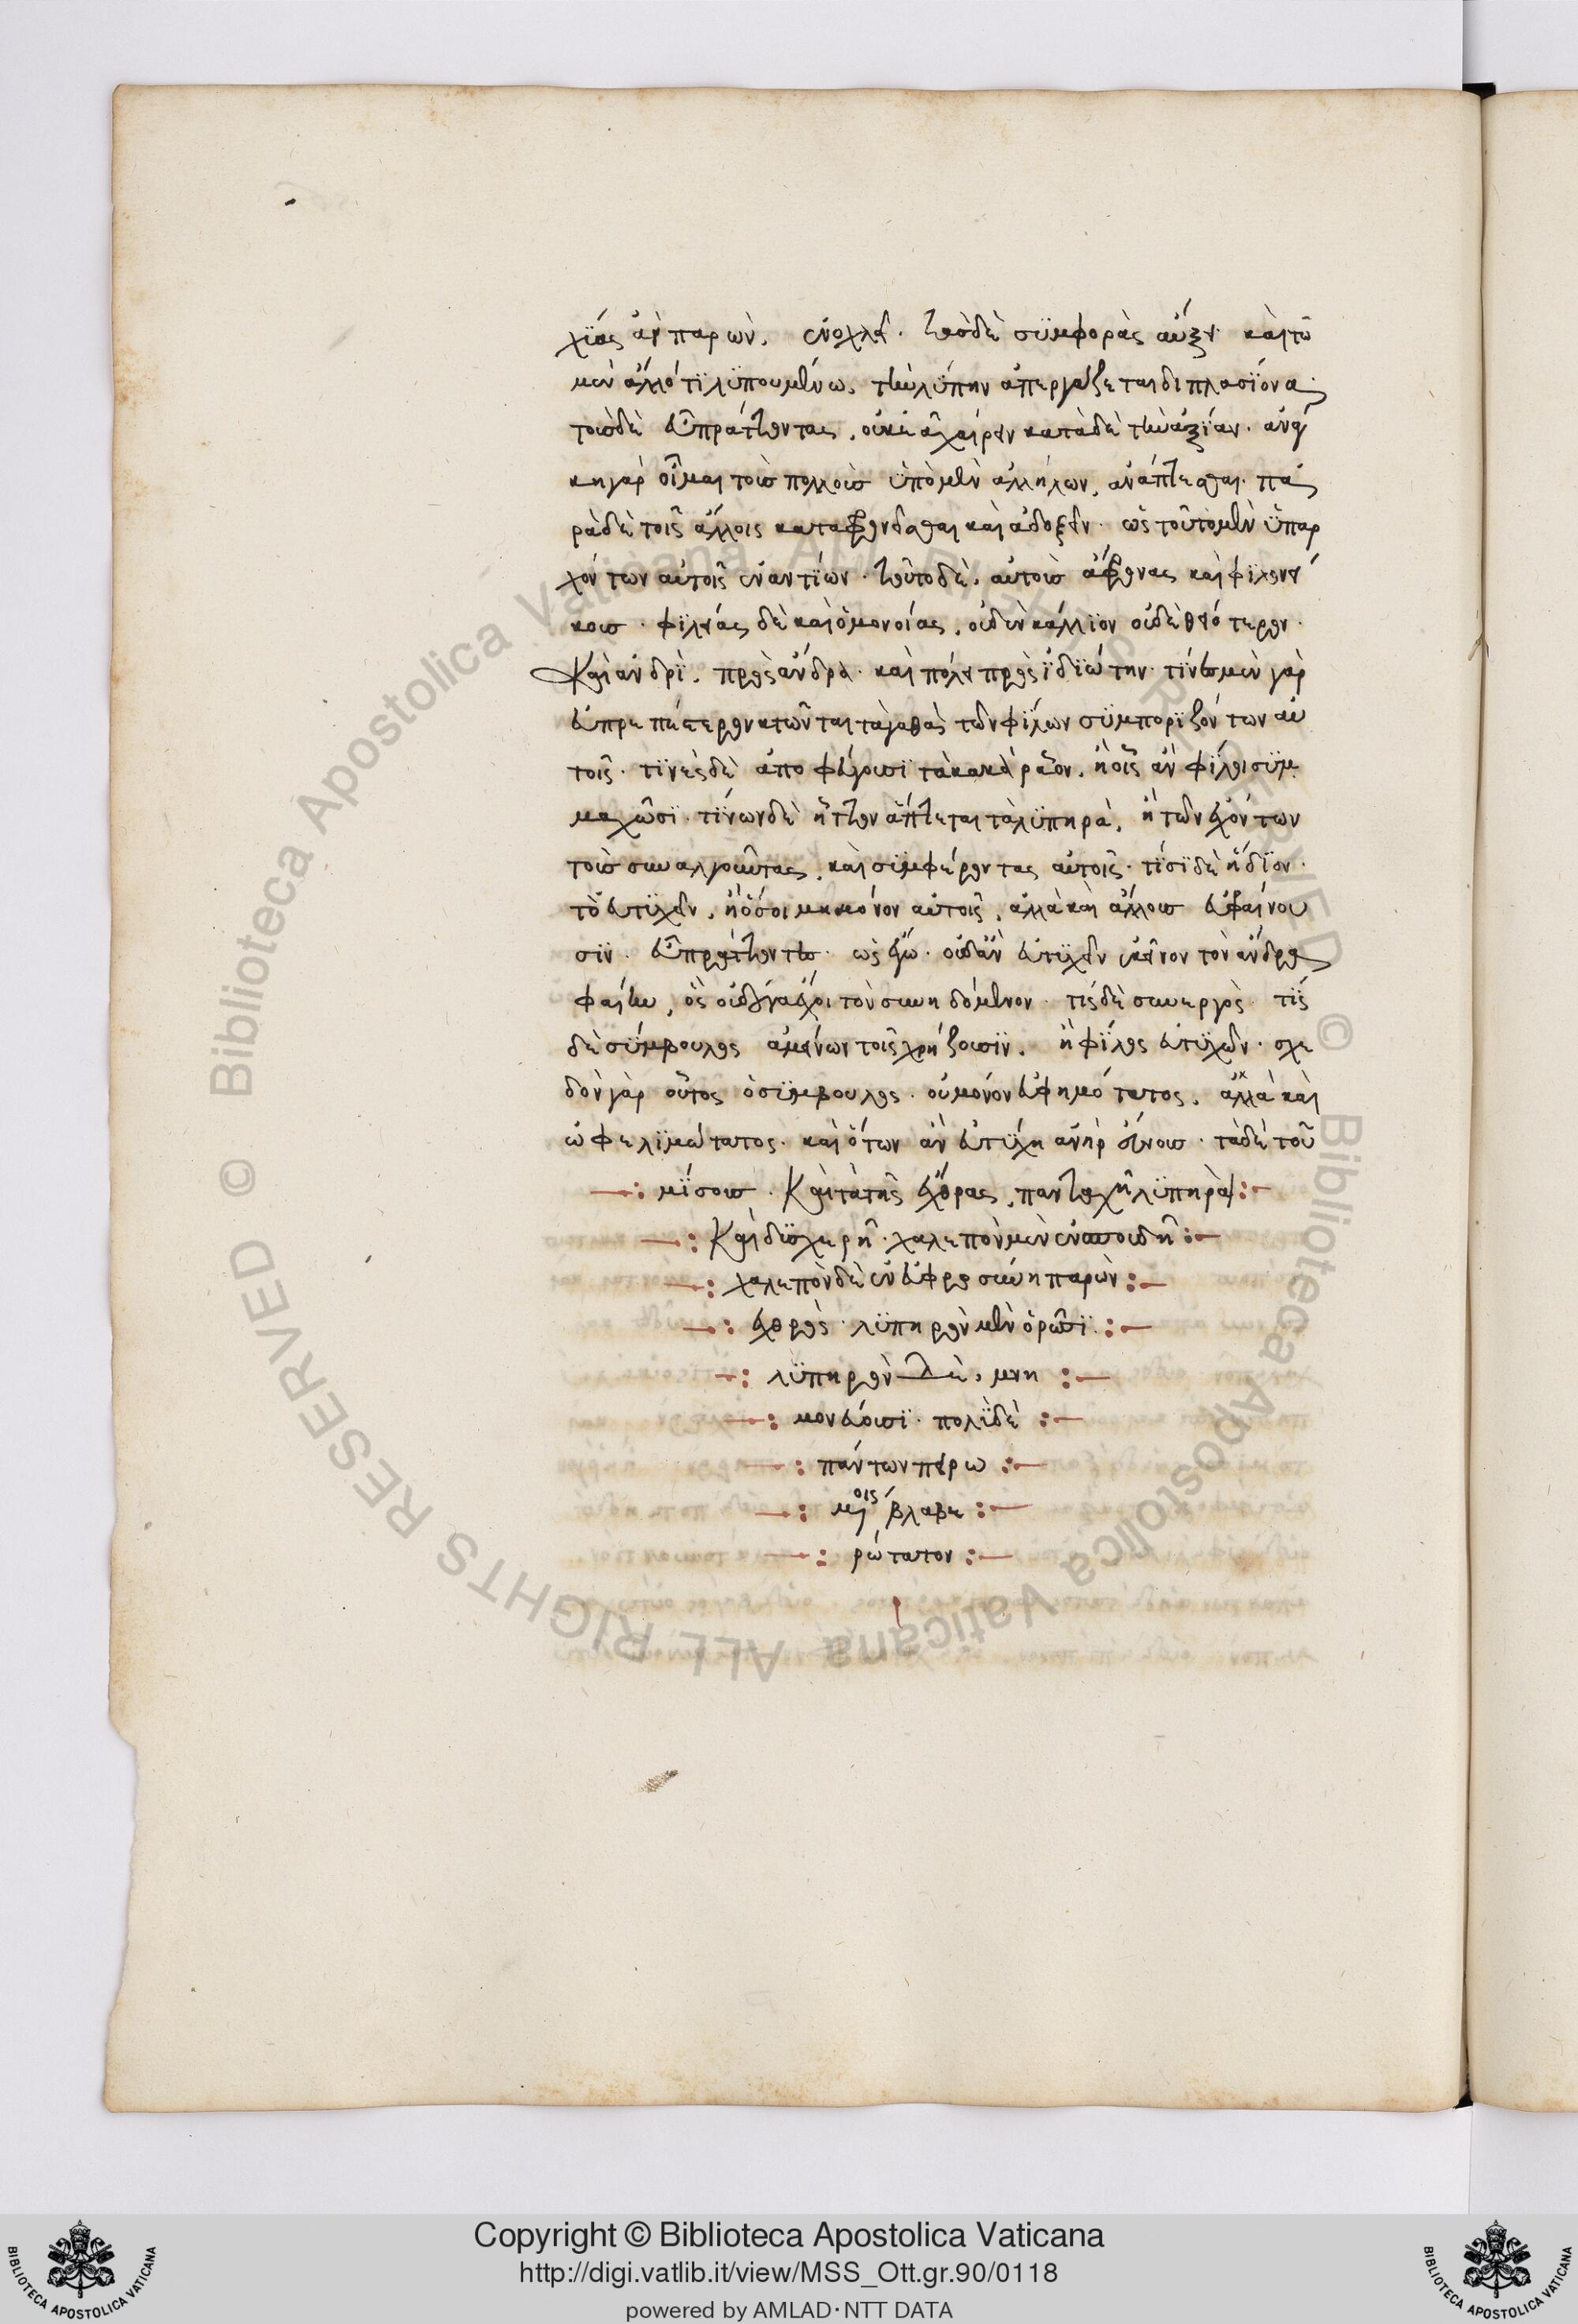 χίας ἀεὶ παρὼν. ἐνοχλεῖ. τὰσ δὲ συμφορὰς αὔξει. καὶ τῶ
μὲν ἄλλό τι λυπουμένω. τὴν λύπην ἀπεργάζεται διπλασίονα.
τοὺσ δὲ εὖ πράττοντας. οὐκ ἐᾶ χαίρειν κατὰ δὲ τὴν ἀξίαν. ἀνάγ
κη γάρ οἶμαι τοῖσ πολλοῖσ ὑπὸ μὲν ἀλλήλων, ἀνάπτεσθαι. πα
ρὰ δὲ τοῖς ἄλλοις καταφρονεῖσθαι καὶ ἀδοξεῖν. ὡς τοῦτο μὲν ὑπαρ
χόντων αὐτοῖς ἐναντίων. τοῦτο δὲ. αὐτοὺσ ἄφρονας καὶ φιλονεί
κουσ. φιλίας δὲ καὶ ὁμονοίας. οὐδὲν κάλλιον οὐδὲ θειότερον.
Καὶ ἀνδρὶ. πρὸς ἄνδρα. καὶ πόλει πρὸς ἰδιώτην. τίνεσ μὲν γὰρ
εὐπρεπέστερον κτῶνται τἀγαθὰ τῶν φίλων συμποριζόντων αὐ
τοῖς. τίνες δὲ ἀποφεύγουσι τὰ κακὰ ρᾶον. ἢ οἷς ἂν φίλοι συμ
μαχῶσι. τίνων δὲ ἧττον ἅπτεται τὰ λυπηρά. ἢ τῶν ἐχόντων
τοὺσ συναλγοῦντας. καὶ συμφέροντας αὐτοῖς. τίσι δὲ ἥδιον.
τὸ εὐτυχεῖν. ἢ ὅσοι μὴ μόνον αὐτοῖς, ἀλλὰ καὶ ἄλλουσ εὐφραίνου
σιν. εὖ πράττοντεσ. ὡς ἐγὼ. οὐδ' ἂν εὐτυχεῖν ἐκεῖνον τὸν ἄνδρα
φαίην, ὃς οὐδένα ἔχει τὸν συνηδόμενον. τίς δὲ συνεργὸς. τίς
δὲ σύμβουλος ἀμείνων τοῖς χρήζουσιν. ἢ φίλος εὐτυχῶν. σχε
δὸν γὰρ οὗτος ὁ σύμβουλος. οὐ μόνον εὐφημότατος. ἀλλὰ καὶ
ὠφελιμώτατος. καὶ ὅτων ἂν εὐτύχη ἀνὴρ εὔνουσ. τὰ δὲ τοῦ
μίσουσ. Καὶ τὰ τῆς ἔχθρας, πανταχῆ λυπηρὰ
Καὶ δυσχερῆ. χαλεπὸν μὲν ἐν σπουδῆ
χαλεπὸν δὲ ἐν εὐφροσύνη παρὼν
ἐχθρὸς. λυπηρὸν μὲν ὁρῶσι
λυπηρὸν δὲ. μνη
μονεύουσι. πολὺ δὲ
πάντων πειρω
μένοις βλαβε
ρώτατον
Copyright © Biblioteca Apostolica Vaticana
http://digi.vatlib.it/view/MSS_Ott.gr.90/0118
powered by AMLAD·NTT DATA
BIBLIOTECA APOSTOLICA VATICANA
BIBLIOTECA APOSTOLICA VATICANA
© Biblioteca Apostolica Vaticana ALL RIGHTS RESERVED © Biblioteca Apostolica Vaticana ALL RIGHTS RESERVED